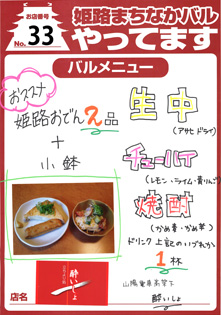 お店番号
No. 33
姫路まちなかバル
やってます
バルメニュー
おススメ
姫路おでん2品
+
小鉢
生中
(アサヒ ドライ)
チューハイ
(レモン・ライム・青りんご)
焼酎
(かめ麦・かめ芋)
ドリンク 上記のいづれか
1杯
店名
酔いしょ